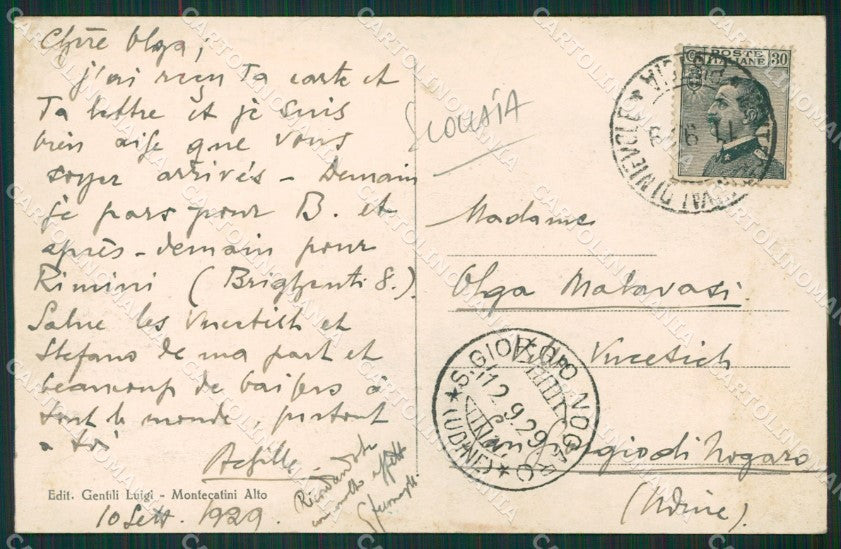 Chère Olga,
j'ai reçu ta carte et
ta lettre et je suis
bien aise que vous
soyez arrivés – Demain
je pars pour B. et
après-demain pour
Rimini (Brighenti 8.).
Salue les Vucetich et
Stefano de ma part et
beaucoup de baisers à
tout le monde, partout
a toi
Achille
Edit. Gentili Luigi - Montecatini Alto
10 Sett. 1929.
Ricordandola
con molto affetto
POSTE
ITALIANE 30
VAL DI NIEVOLE
Madame
Olga Malavasi
Vucetich
S. Giorgio di Nogaro
(Udine).
S. GIORGIO NOGARO
12.9.29
(UDINE)
CARTOLINOMANIA